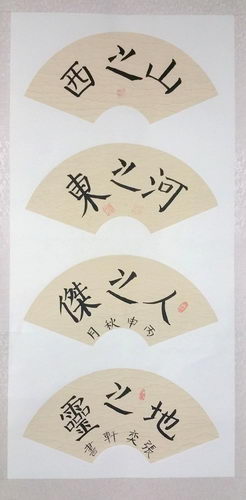 山之西
河之東
人之傑
丙申秋月
地之靈
張奕軒書